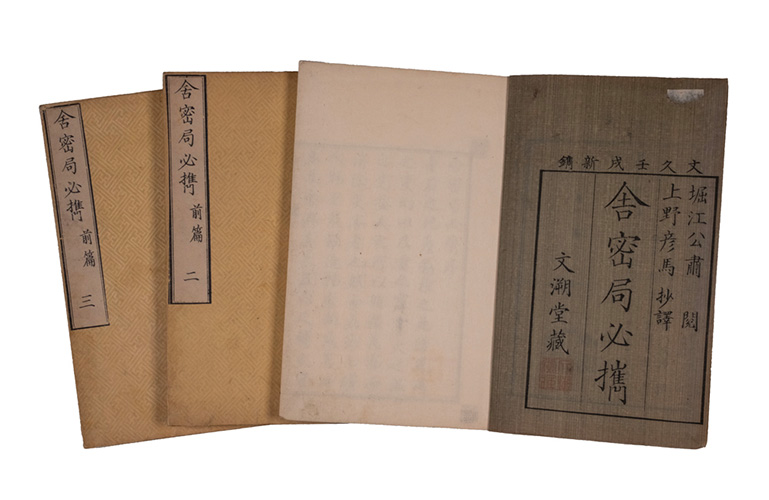 舎密局必携 前篇 三
舎密局必携 前篇 二
文久壬戌新鐫
堀江公肅 閲
上野彦馬 抄譯
舎密局必攜
文溯堂藏